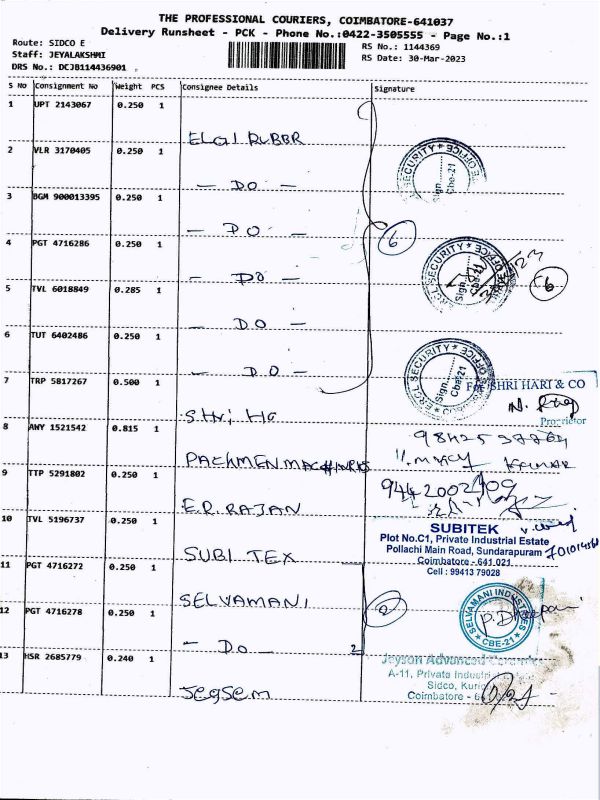 THE PROFESSIONAL COURIERS, COIMBATORE-641037
Delivery Runsheet - PCK - Phone No.:0422-3505555 - Page No.:1
Route: SIDCO E
Staff: JEYALAKSHMI
DRS No.: DCJB114436901
RS No.: 1144369
RS Date: 30-Mar-2023
S No Consignment No Weight PCS Consignee Details Signature
1 UPT 2143067 0.250 1
ELGI RUBBR
2 VLR 3170405 0.250 1
- DO -
3 BGM 900013395 0.250 1
- DO -
4 PGT 4716286 0.250 1
- DO -
5 TVL 6018849 0.285 1
- DO -
6 TUT 6402486 0.250 1
- DO -
7 TRP 5817267 0.500 1
Shri Ha
8 AWY 1521542 0.815 1
9 TTP 5291802 0.250 1
E.R. RAJAN
10 TVL 5196737 0.250 1
SUBI TEX
11 PGT 4716272 0.250 1
SELVAMANI
12 PGT 4716278 0.250 1
- Do - 2
13 HSR 2685779 0.240 1
SECURITY * OFFICE
Sign.
Cbe-21
6
ERCL SECURITY * OFFICE
Sign.
Cbe-21
6
ERCL SECURITY * OFFICE
Sign.
Cbe-21
For SHRI HARI & CO
Proprietor
KUMAR
SUBITEK
Plot No.C1, Private Industrial Estate
Pollachi Main Road, Sundarapuram
Coimbatore - 641 021
Cell : 99413 79028
2
SELVAMANI INDUSTRIES
* CBE-21 *
Jeyson Advanced
A-11, Private Industrial
Sidco,
Coimbatore -